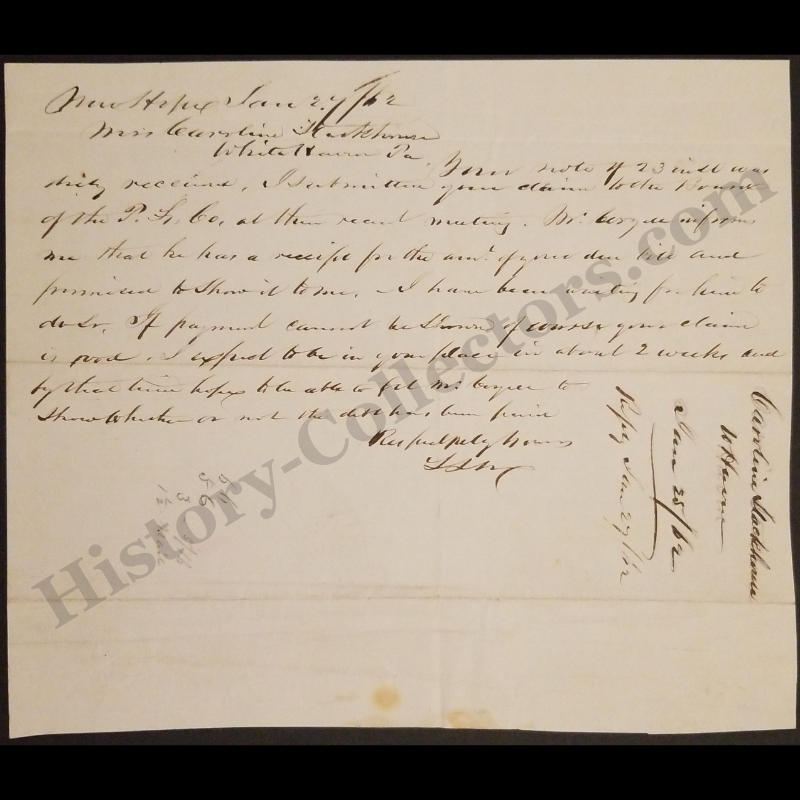 New Hope Jan 27/62
Mrs Caroline Stackhouse
White Haven Pa.
Your note of 23 inst was
duly received. I submitted your claim to the Board
of the P. L. Co. at their recent meeting. Mr. informs
me that he has a receipt for the amt. of your due bill and
promised to show it to me. I have been waiting for him to
do so. If payment cannot be shown of course your claim
is good. I expect to be in your place in about 2 weeks and
by that time hope to be able to get Mr. to
show whether or not the debt has been paid
Respectfully Yours
Caroline Stackhouse
W Haven
Jan 25/62
Reply Jan 27/62
History-Collectors.com